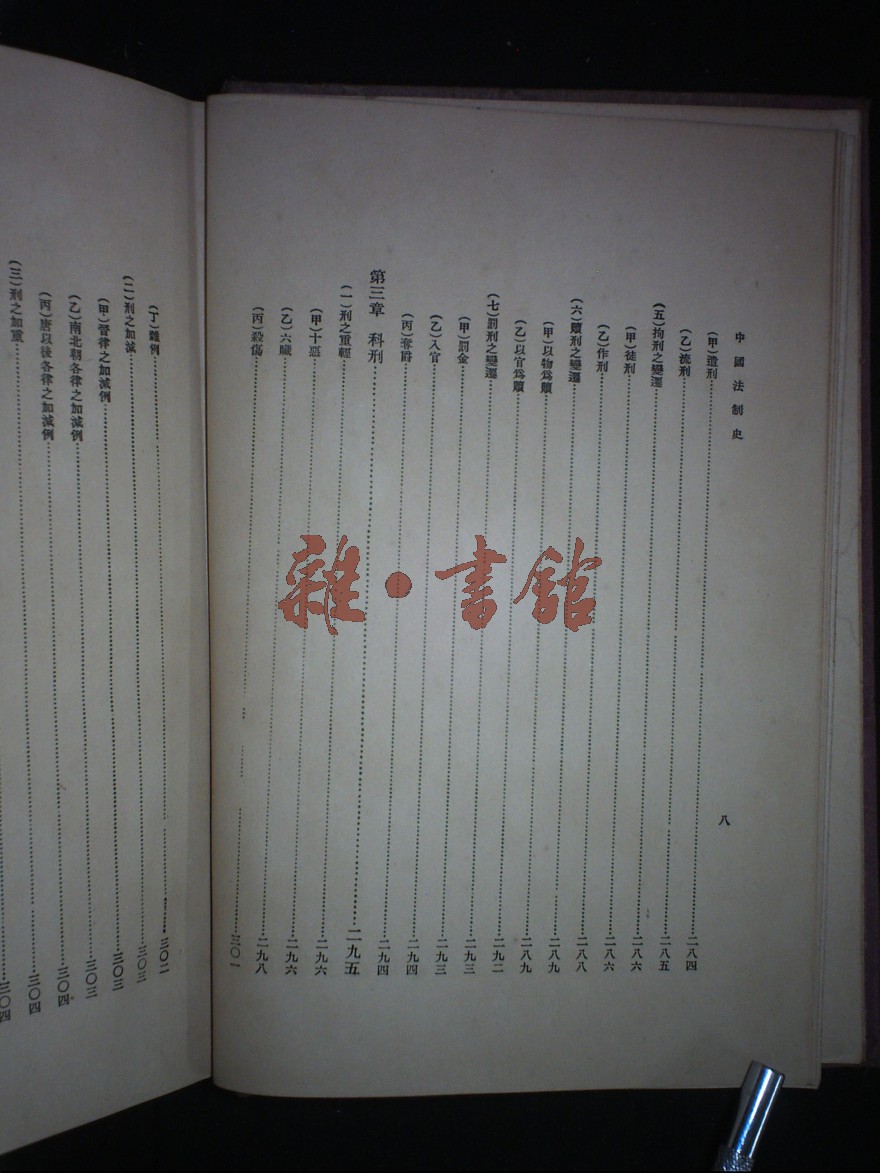 中國法制史
八
(甲)遣刑……二八四
(乙)流刑……二八五
(五)拘刑之變遷……二八六
(甲)徒刑……二八六
(乙)作刑……二八八
(六)贖刑之變遷……二八九
(甲)以物爲贖……二八九
(乙)以官爲贖……二九二
(七)罰刑之變遷……二九三
(甲)罰金……二九三
(乙)入官……二九四
(丙)奪爵……二九四
第三章 科刑……二九五
(一)刑之重輕……二九六
(甲)十惡……二九六
(乙)六贓……二九八
(丙)殺傷……三〇一
(丁)雜例……三〇二
(二)刑之加減……三〇三
(甲)晉律之加減例……三〇三
(乙)南北朝各律之加減例……三〇三
(丙)唐以後各律之加減例……三〇四
(三)刑之加重……三〇四
三〇四
雜·書館